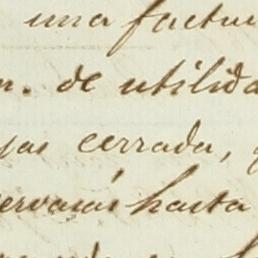 una factur
n. de utilida
jas cerrada,
ervarán hasta